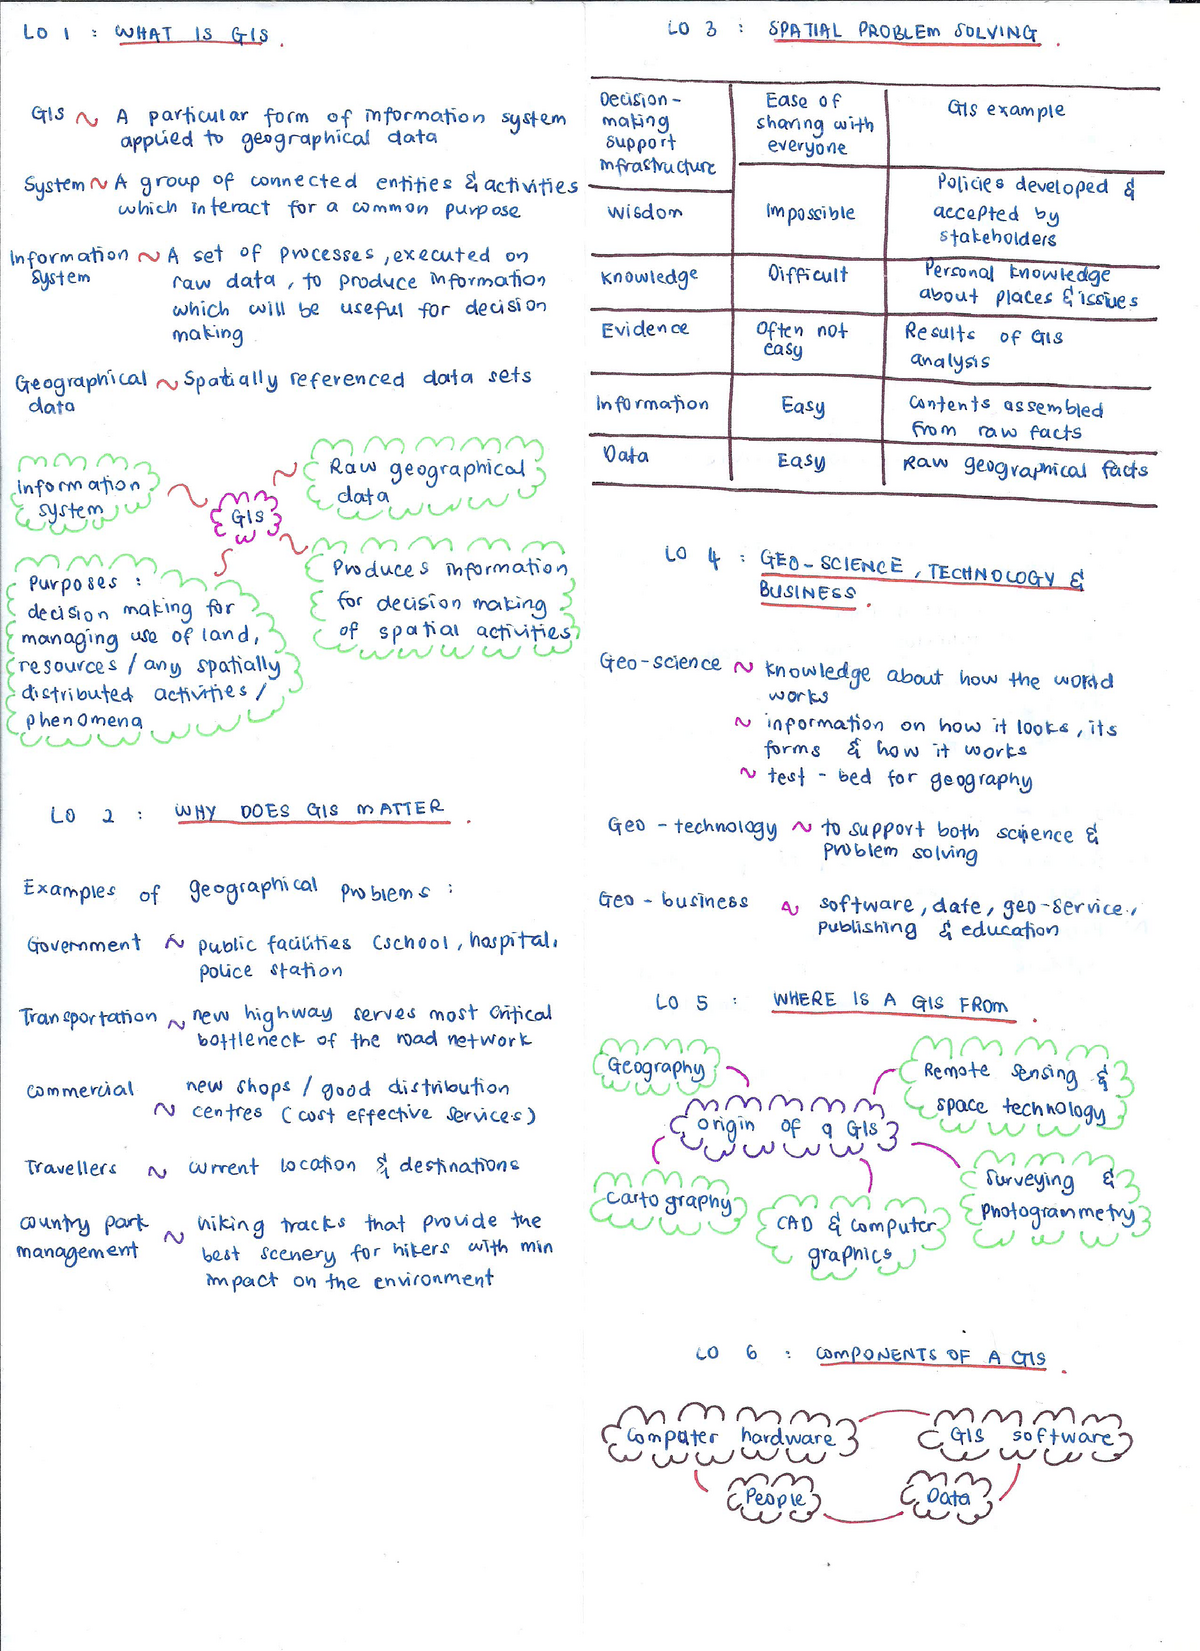 LO 1 : WHAT IS GIS.
GIS ~ A particular form of information system
applied to geographical data
System ~ A group of connected entities & activities
which interact for a common purpose
Information ~ A set of processes, executed on
system raw data, to produce information
which will be useful for decision
making
Geographical ~ Spatially referenced data sets
data
Information
system
GIS
Raw geographical
data
Purposes :
decision making for
managing use of land,
resources / any spatially
distributed activities /
phenomena
Produces information
for decision making
of spatial activities
LO 2 : WHY DOES GIS MATTER.
Examples of geographical problems :
Government ~ public facilities (school, hospital,
police station
Transportation ~ new highway serves most critical
bottleneck of the road network
Commercial new shops / good distribution
~ centres (cost effective services)
Travellers ~ current location & destinations
country park ~ hiking tracks that provide the
management best scenery for hikers with min
impact on the environment
LO 3 : SPATIAL PROBLEM SOLVING.
Decision-
making
support
infrastructure
Ease of
sharing with
everyone
GIS example
Wisdom
Impossible
Policies developed &
accepted by
stakeholders
Knowledge
Difficult
Personal knowledge
about places & issues
Evidence
Often not
easy
Results of GIS
analysis
Information
Easy
Contents assembled
from raw facts
Data
Easy
Raw geographical facts
LO 4 : GEO-SCIENCE, TECHNOLOGY &
BUSINESS.
Geo-science ~ knowledge about how the world
works
~ information on how it looks, its
forms & how it works
~ test-bed for geography
Geo-technology ~ to support both science &
problem solving
Geo-business ~ software, date, geo-service,
publishing & education
LO 5 : WHERE IS A GIS FROM.
Geography
Remote sensing &
space technology
origin of a GIS
Cartography
CAD & computer
graphics
Surveying &
photogrammetry
LO 6 : COMPONENTS OF A GIS.
Computer hardware
GIS software
People
Data